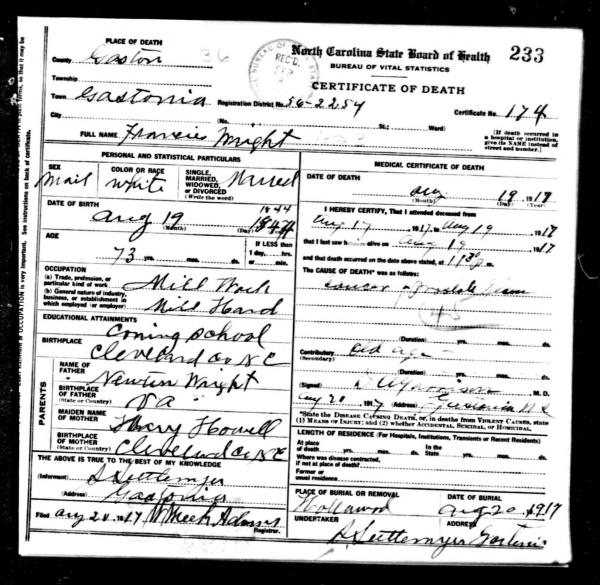 PLACE OF DEATH
County Gaston
36
BUREAU OF
REC'D
SEP
North Carolina State Board of Health
233
BUREAU OF VITAL STATISTICS
Township
CERTIFICATE OF DEATH
Town Gastonia
Registration District No. 36-2254
Certificate No. 174
City
(No. St.; Ward)
[If death occurred in a hospital or institution, give its NAME instead of street and number.]
FULL NAME Francis Wright
PERSONAL AND STATISTICAL PARTICULARS
SEX
Mail
COLOR OR RACE
white
SINGLE, MARRIED, WIDOWED, or DIVORCED
(Write the word)
Married
DATE OF BIRTH
Aug 19 1844
(Month) (Day)
AGE
73 yrs. mos. ds.
If LESS than
1 day, hrs.
or min.
OCCUPATION
(a) Trade, profession, or particular kind of work
Mill Work
(b) General nature of industry, business, or establishment in which employed (or employer)
Mill Hand
EDUCATIONAL ATTAINMENTS
school
BIRTHPLACE
Cleveland Co NC
PARENTS
NAME OF FATHER
Newton Wright
BIRTHPLACE OF FATHER
(State or Country)
Va
MAIDEN NAME OF MOTHER
Howell
BIRTHPLACE OF MOTHER
(State or Country)
Cleveland Co NC
THE ABOVE IS TRUE TO THE BEST OF MY KNOWLEDGE
(Informant) Settlemyer
(Address) Gastonia
Filed Aug 20 1917 Meek Adams
Registrar.
MEDICAL CERTIFICATE OF DEATH
DATE OF DEATH
Aug 19 1917
(Month) (Day) (Year)
I HEREBY CERTIFY, That I attended deceased from
Aug 17, 1917, Aug 19, 1917
that I last saw h alive on Aug 19, 1917
and that death occurred on the date above stated, at 11 30 m.
The CAUSE OF DEATH* was as follows:
Cancer of Prostate
(Duration) yrs. mos. ds.
Contributory old age
(Secondary)
(Duration) yrs. mos. ds.
(Signed) M. D.
Aug 20 1917 (Address) Gastonia N C
*State the DISEASE CAUSING DEATH, or, in deaths from VIOLENT CAUSES, state (1) MEANS OF INJURY; and (2) whether ACCIDENTAL, SUICIDAL, or HOMICIDAL.
LENGTH OF RESIDENCE (For Hospitals, Institutions, Transients or Recent Residents)
At place of death yrs. mos. ds. In the State yrs. mos. ds.
Where was disease contracted, if not at place of death?
Former or usual residence
PLACE OF BURIAL OR REMOVAL
DATE OF BURIAL
Aug 20 1917
UNDERTAKER
ADDRESS
Settlemyer Gastonia